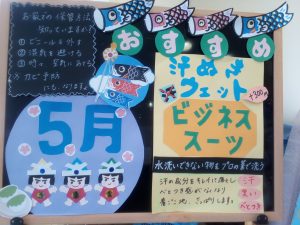 お家での保管方法
知っていますか?
① ビニールを外す
② 湿気を避ける
カビ予防
にもなります。
5月
おすすめ
汗ぬき
ウエット
ビジネス
スーツ
水洗いできない物をプロの業で洗う
汗の成分をキレイに落とし
べとつき感がなくなり
着ごこち、さっぱりします。
汗
臭い
べとつき